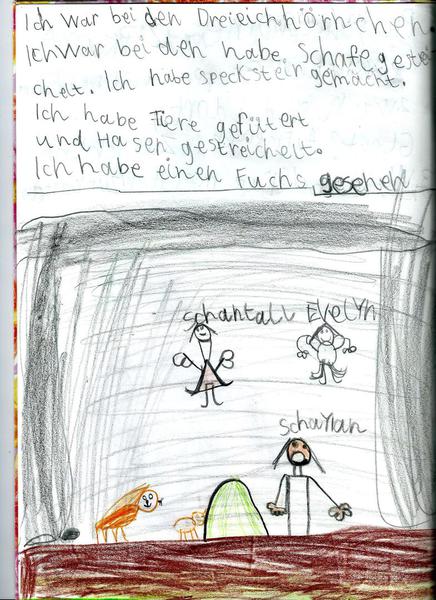 Ich War bei den Dreieichhörnchen.
Ich War bei den habe Schafe gestrei
chelt. Ich habe speckstein gemacht.
Ich habe Tiere gefütert
und Hasen gestreichelt.
Ich habe einen Fuchs gesehen
schantall Evelyn
schaylan